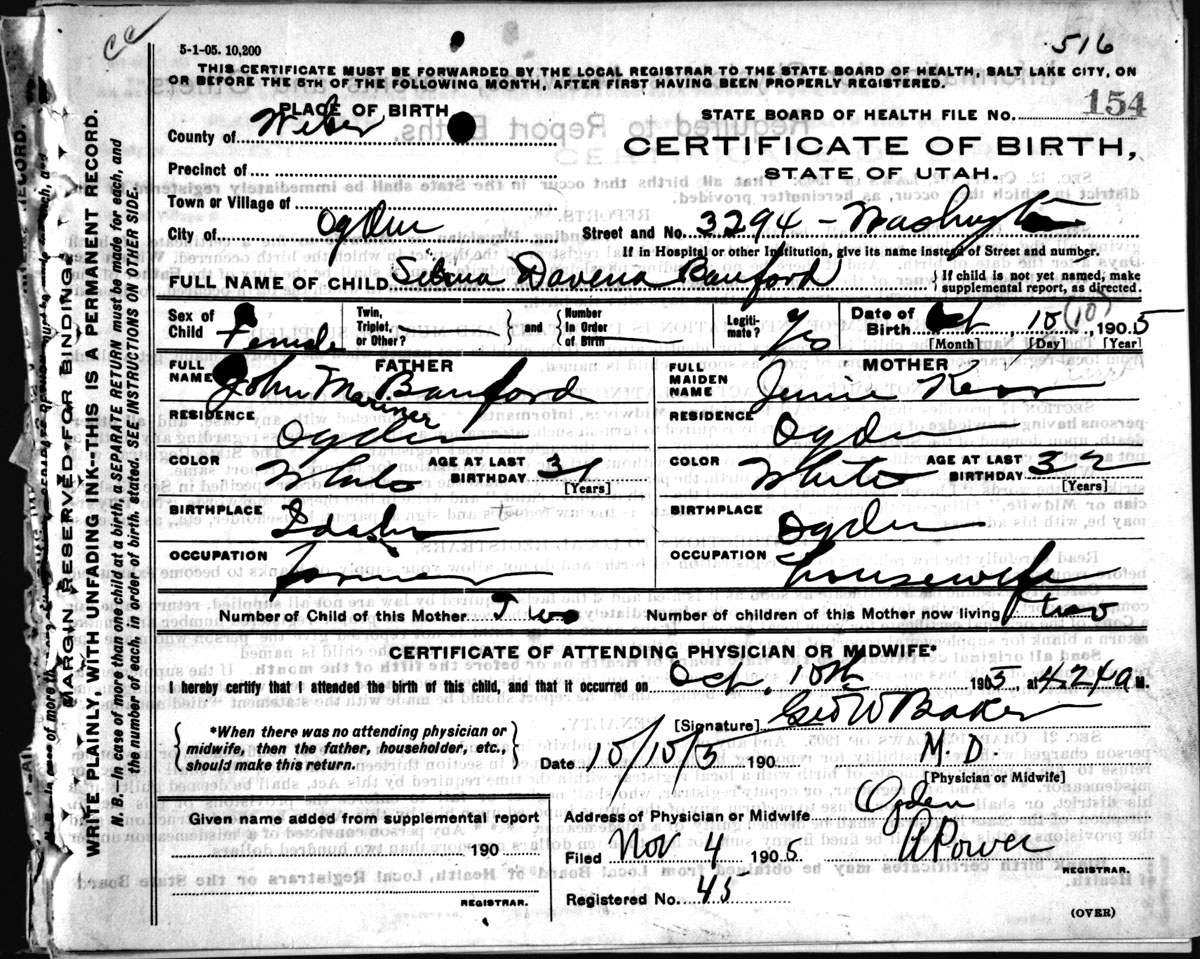 5-1-05. 10,200
516
THIS CERTIFICATE MUST BE FORWARDED BY THE LOCAL REGISTRAR TO THE STATE BOARD OF HEALTH, SALT LAKE CITY, ON
OR BEFORE THE 5TH OF THE FOLLOWING MONTH, AFTER FIRST HAVING BEEN PROPERLY REGISTERED.
PLACE OF BIRTH
STATE BOARD OF HEALTH FILE No. 154
County of Weber
CERTIFICATE OF BIRTH,
Precinct of
STATE OF UTAH.
Town or Village of
City of Ogden
Street and No. 3294 - Washington
If in Hospital or other Institution, give its name instead of Street and number.
FULL NAME OF CHILD Davena
{If child is not yet named, make supplemental report, as directed.
Sex of Child Female
Twin, Triplet, or Other? } and { Number In Order of Birth
Legiti- mate? Yes
Date of Birth Oct, 10 (10), 1905
[Month] [Day] [Year]
FATHER
FULL NAME John M. Mariner
MOTHER
FULL MAIDEN NAME Jennie Kerr
RESIDENCE Ogden
RESIDENCE Ogden
COLOR White AGE AT LAST BIRTHDAY 31 [Years]
COLOR White AGE AT LAST BIRTHDAY 32 [Years]
BIRTHPLACE Idaho
BIRTHPLACE Ogden
OCCUPATION
OCCUPATION Housewife
Number of Child of this Mother Two
Number of children of this Mother now living two
CERTIFICATE OF ATTENDING PHYSICIAN OR MIDWIFE*
I hereby certify that I attended the birth of this child, and that it occurred on Oct, 10th 1905, at 4.24 a M.
{ *When there was no attending physician or midwife, then the father, householder, etc., should make this return. }
[Signature] Geo W Baker
Date 10/10/5 190 M.D.
[Physician or Midwife]
Given name added from supplemental report
190
REGISTRAR.
Address of Physician or Midwife Ogden
Filed Nov 4 1905 A Power
REGISTRAR.
Registered No. 45
(OVER)
MARGIN RESERVED FOR BINDING.
WRITE PLAINLY, WITH UNFADING INK--THIS IS A PERMANENT RECORD.
N. B.--In case of more than one child at a birth, a SEPARATE RETURN must be made for each, and
the number of each, in order of birth, stated. SEE INSTRUCTIONS ON OTHER SIDE.